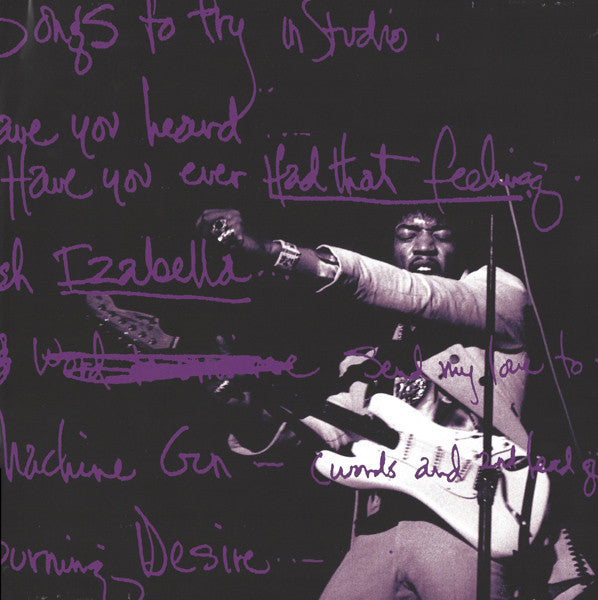 Songs to try in Studio.
ave you heard ...
Have you ever Had that feeling.
sh Izabella ...
Send my love to
Machine Gun — (words and lead g
Burning Desire — —